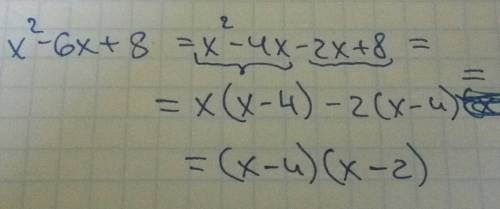 x²-6x+8 = x²-4x-2x+8 =
= x(x-4) - 2(x-4) =
= (x-4)(x-2)